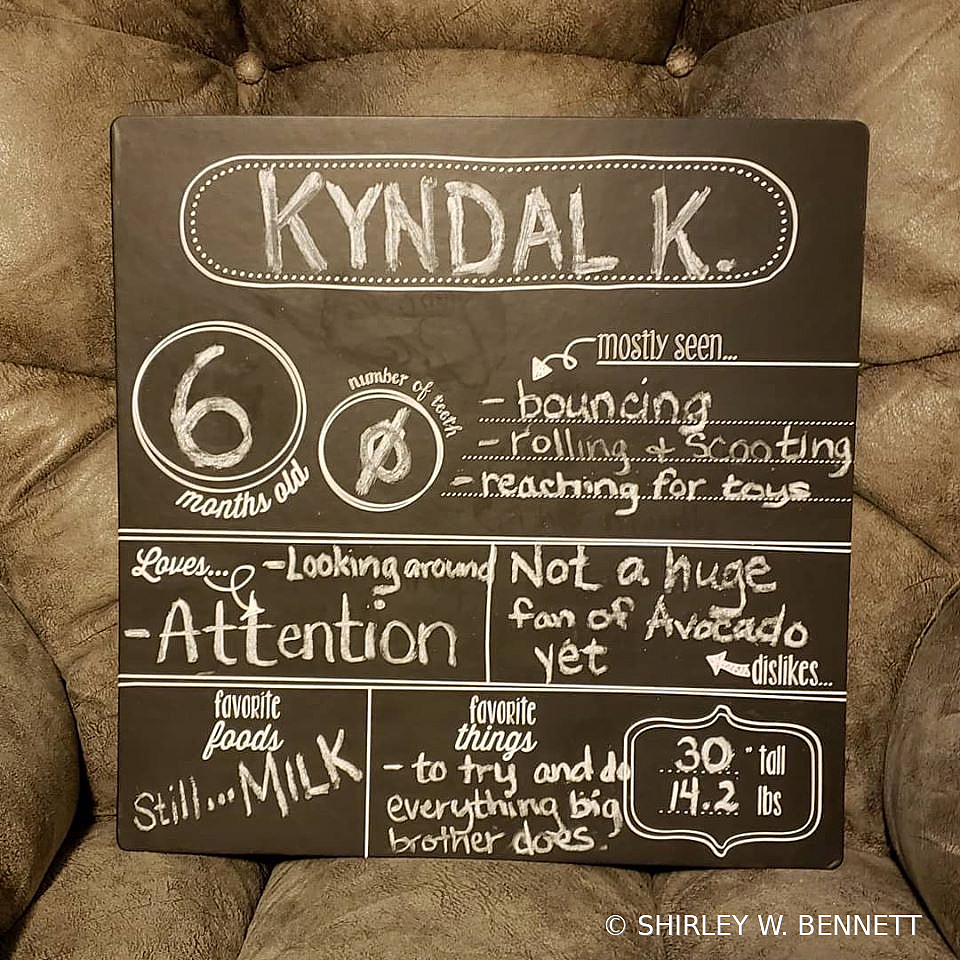 KYNDAL K.
6
months old
number of teeth
0
mostly seen...
- bouncing
- rolling & Scooting
- reaching for toys
Loves... - Looking around
- Attention
Not a huge
fan of Avocado
yet
dislikes...
favorite
foods
Still... MILK
favorite
things
- to try and do
everything big
brother does.
30 " tall
14.2 lbs
© SHIRLEY W. BENNETT